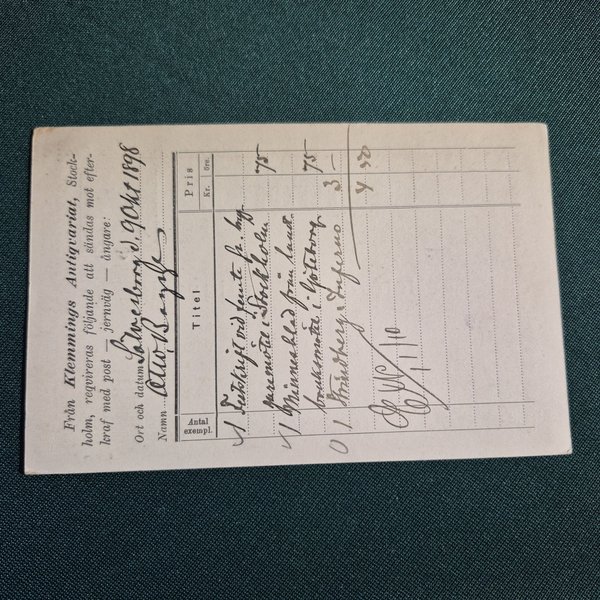 Från Klemmings Antiqvariat, Stock-
holm, reqvireras följande att sändas mot efter-
kraf med post — jernväg — ångare:
Ort och datum Sölvesborg d. 9 Okt 1898
Namn Otto
Antal exempl. Titel Pris Kr. Öre.
1 Festskrift vid femte
mötet i Stockholm 75
1 Minnesblad från landt-
bruksmötet i Göteborg 75
0 1 Strindberg, Inferno 3 —
4 50
11/10